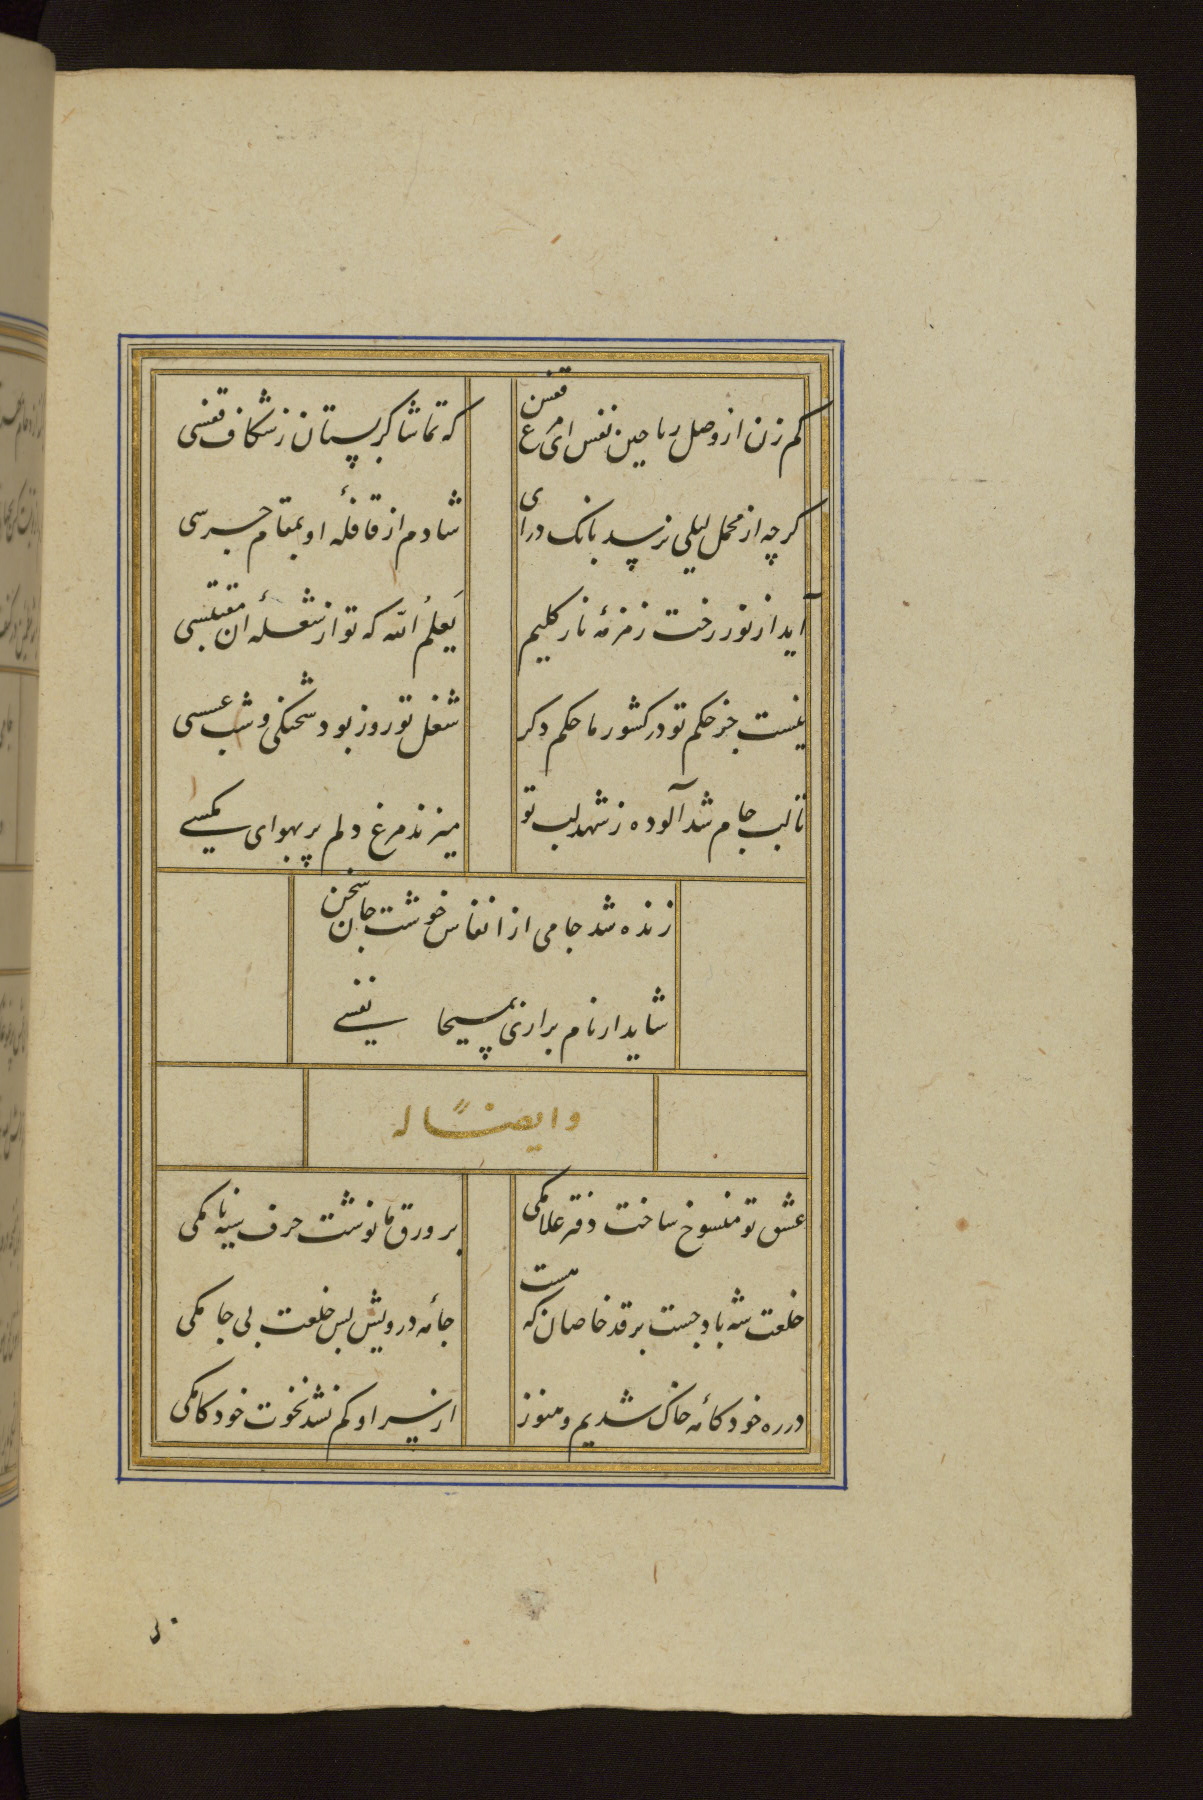 کم زن از وصل ریاحین نفس ای مرغ قفس
که تماشاکر بستان ز شکاف قفسی
کرچه از محمل لیلی نرسد بانک درای
شادم از قافلهٔ او بمقام جرسی
آید از نور رخت زمزمهٔ نار کلیم
یَعلَمُ الله که تو از شعلهٔ آن مقتبسی
نیست جز حکم تو در کشور ما حکم دکر
شغل تو روز بود شحنکی و شب عسسی
تا لب جام شد آلوده ز شهد لب تو
میزند مرغ دلم پر بهوای مکسی
زنده شد جامی از انفاس خوشت جان سخن
شاید ار نام براری بمسیحا نفسی
وایضاً له
عشق تو منسوخ ساخت دفتر علامکی
بر ورق ما نوشت حرف نامکی
خلعت شه باد جست بر قد خاصان که هست
جامهٔ درویش بس خلعت بی جامکی
در ره خودکامهٔ خاک شدیم و هنوز
از سر او کم نشد نخوت خودکامکی